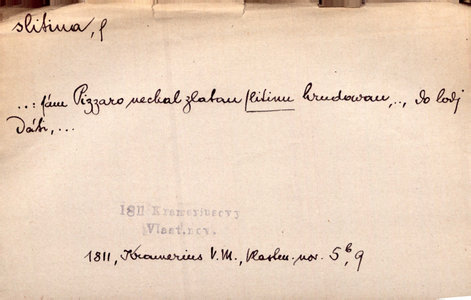 slitina, f
...: sám Pizzaro nechal zlatau slitinu hrudowau,.., do lodj
dáti,...
1811 Krameriusovy
Vlast.nov.
1811, Kramerius V.M., Vlasten. nov. 5b, 9